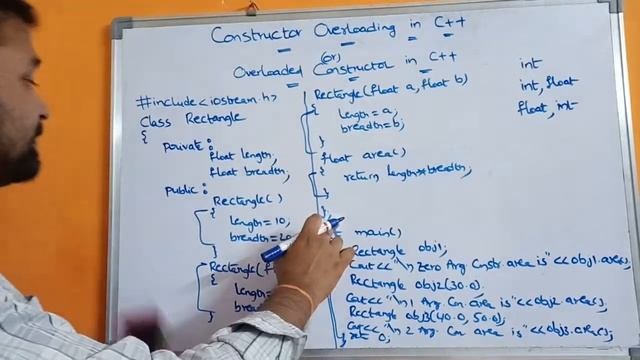 Constructor Overloading in C++
(or)
Overloaded Constructor in C++
#include<iostream.h>
Class Rectangle
{
private:
float length,
float breadth,
public:
Rectangle()
{
length=10,
breadth=20
}
Rectangle(f
{
length=
}
Rectangle(float a, float b)
{
length=a;
breadth=b;
}
float area()
{
return length*breadth,
}
}
main()
Rectangle obj1;
Cout<<"\n Zero Arg Cnstr area is"<<obj1.area();
Rectangle obj2(30.0).
Cout<<"\n 1 Arg. Cn. area is"<<obj2.area();
Rectangle obj3(40.0, 50.0);
Cout<<"\n 2 Arg. Cn area is"<<obj3.area();
0;
}
int
int, float
float, int